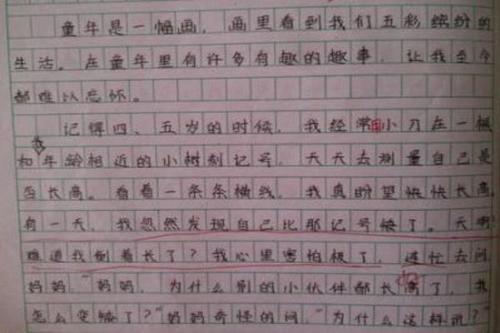 童年是一幅画，画里看到我们五彩缤纷的
生活。在童年里有许多有趣的趣事，让我至今
都难以忘怀。
记得四、五岁的时候，我经常用小刀在一棵
和年龄相近的小树刻记号，天天去测量自己是
否长高。看着一条条横线，我真盼望快快长高
有一天，我忽然发现自己比那记号矮了。天啊
难道我倒着长了？我心里害怕极了，连忙去问
妈妈："妈妈，为什么别的小伙伴都长高了，我
怎么变矮了？"妈妈奇怪的问："为什么这样说？"